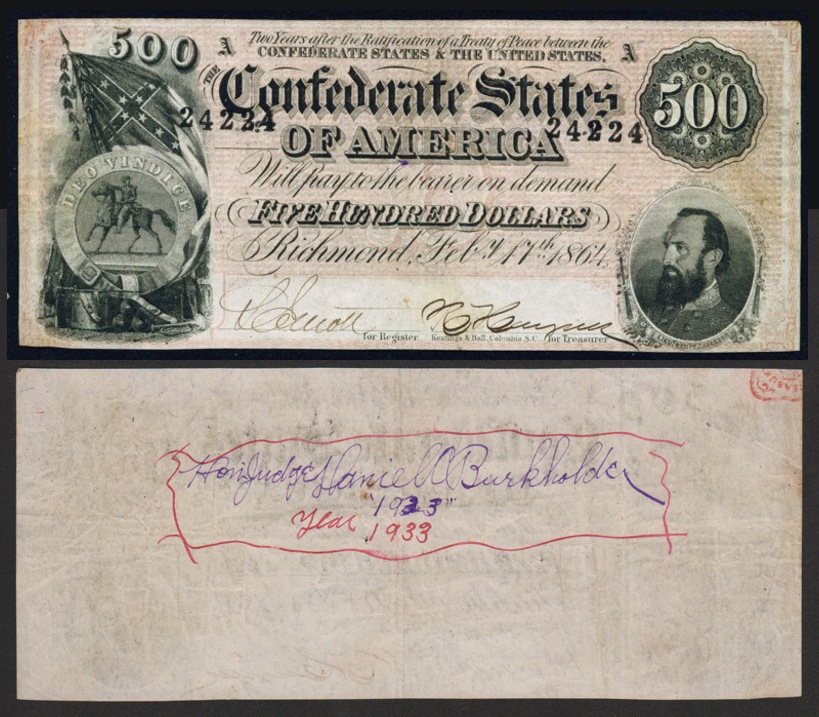 500 A Two Years after the Ratification of a Treaty of Peace between the A
CONFEDERATE STATES & THE UNITED STATES,
THE Confederate States 500
24224 24224
OF AMERICA
DEO VINDICE
Will pay to the bearer on demand
FIVE HUNDRED DOLLARS
Richmond, Feby. 17th. 1864.
for Register. Keatinge & Ball, Columbia, S.C. for Treasurer
Hon Judge Daniel Burkholder
"1933"
Year 1933